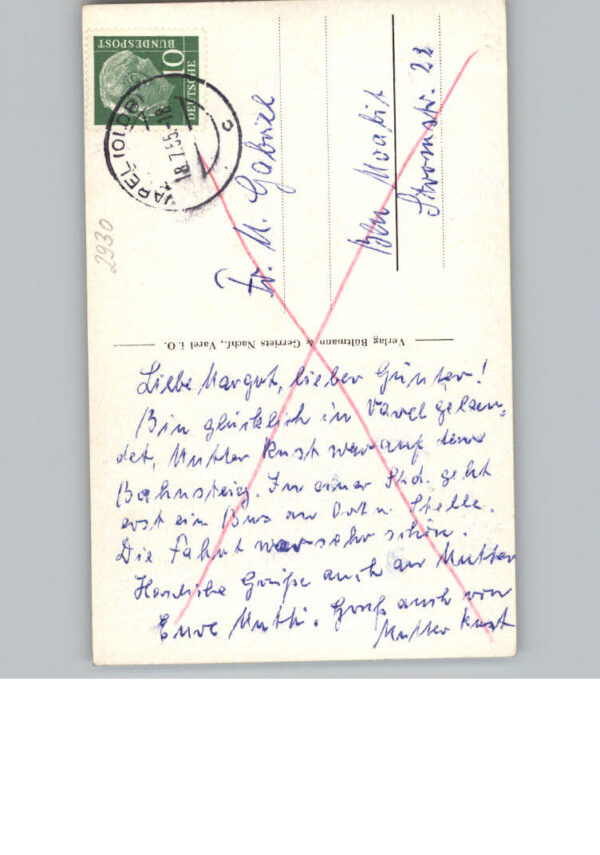 DEUTSCHE
BUNDESPOST
10
VAREL (OLDB)
18.7.55.-18
c
Fr. M. Gabriel
Bln Moabit
Stromstr. 22
2930
Verlag Bültmann & Gerriets Nachf., Varel i. O.
Liebe Margot, lieber Günter!
Bin glücklich in Varel gelan-
det, Mutter Kust war auf dem
Bahnsteig. In einer Std. geht
erst ein Bus an Ort u. Stelle.
Die Fahrt war sehr schön.
Herzliche Grüße auch an Mutter
Eure Mutti. Gruß auch von
Mutter Kust